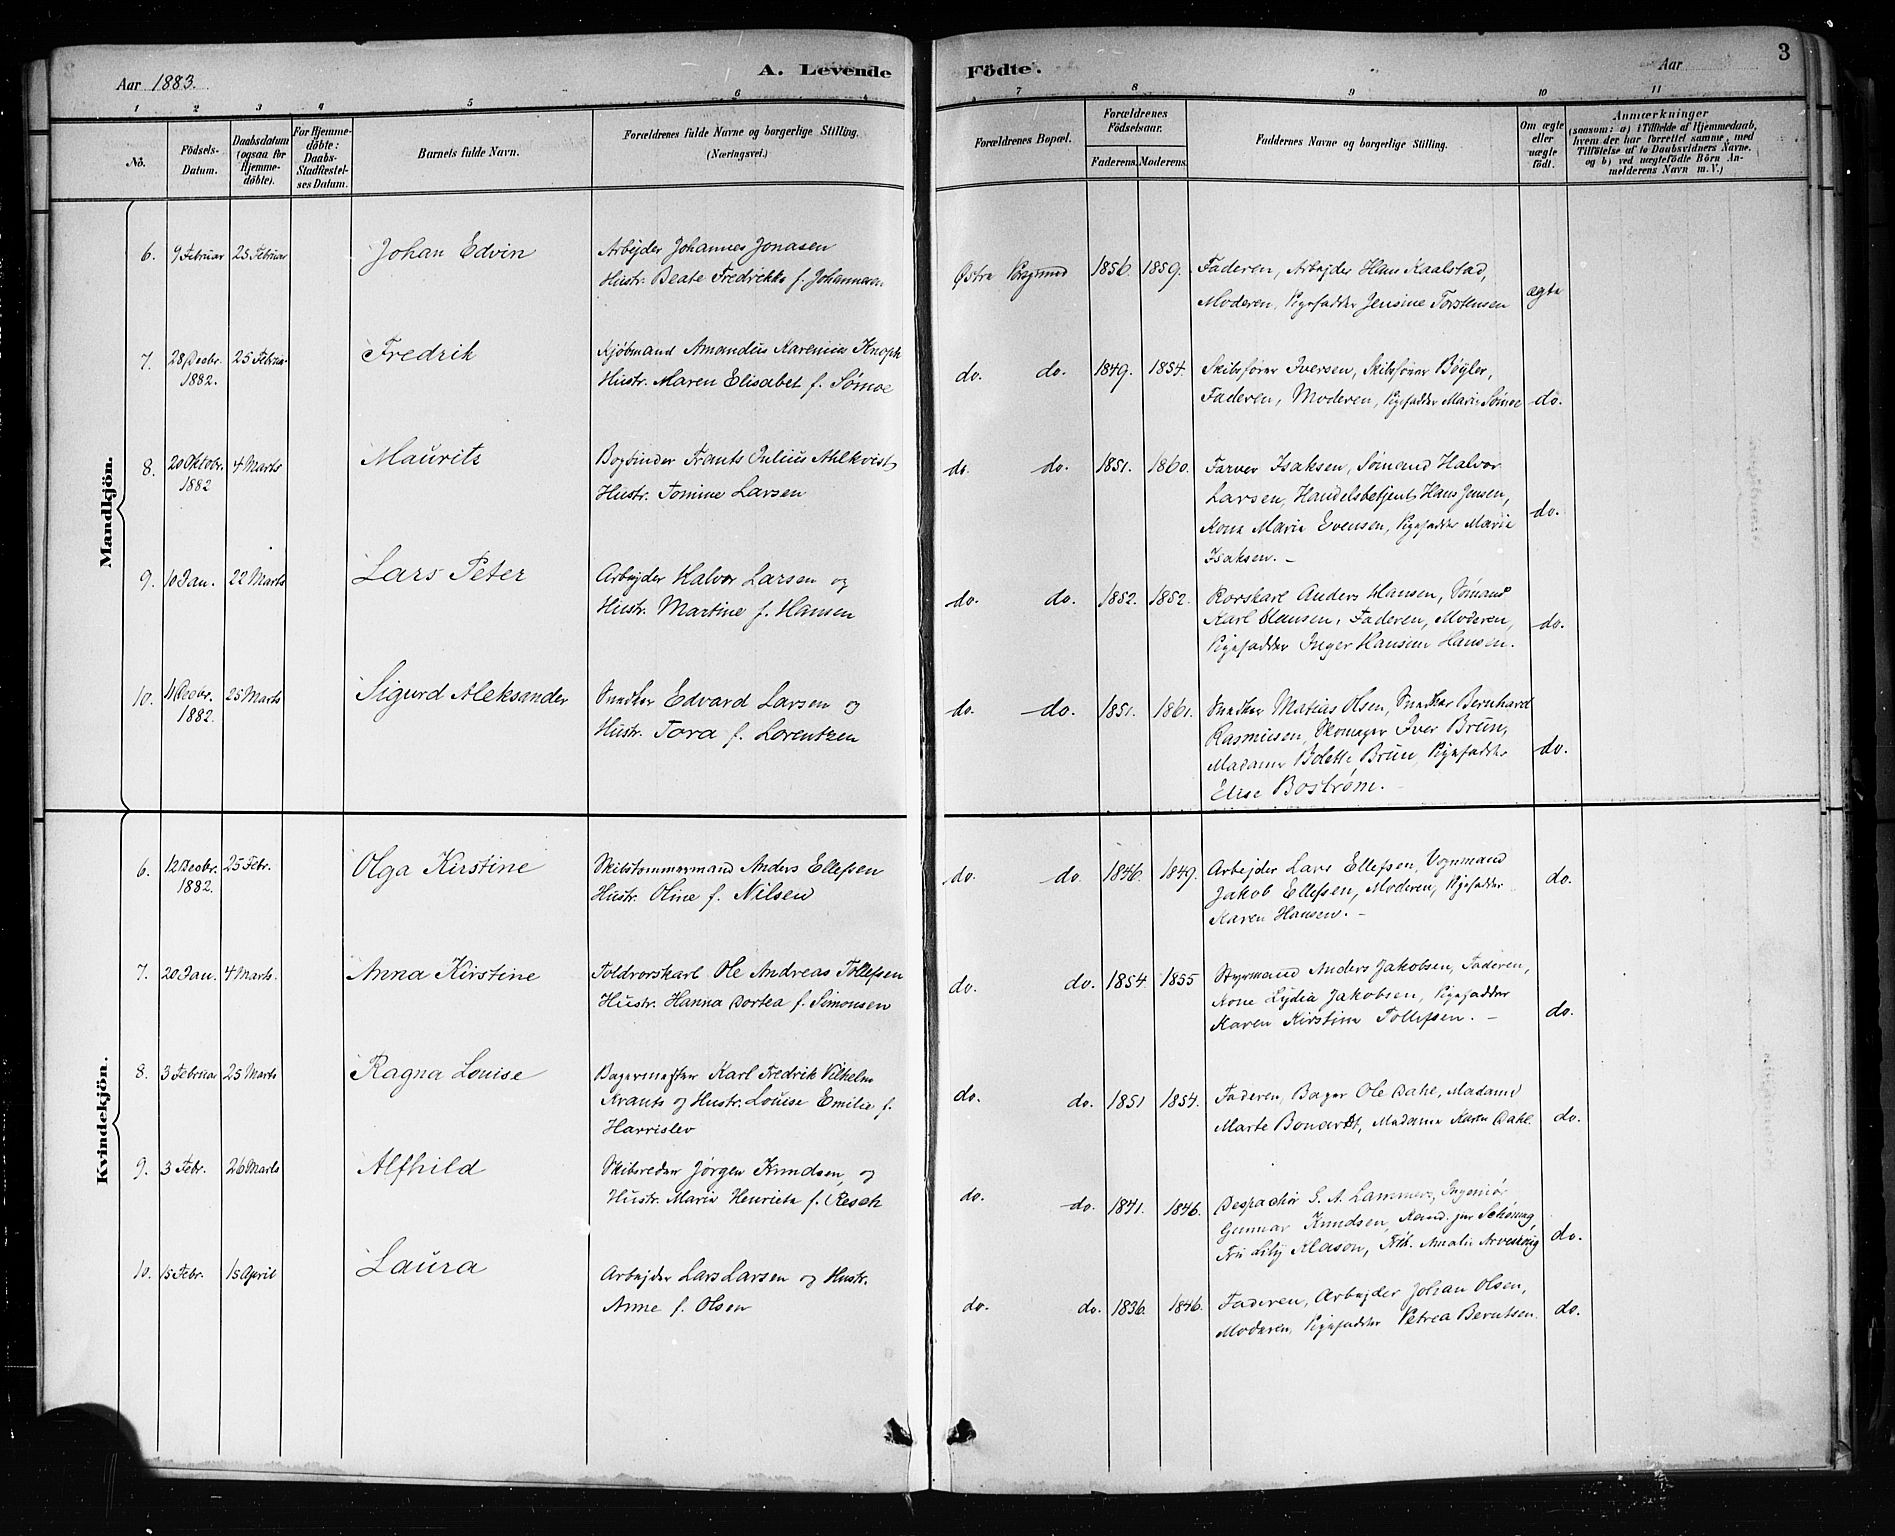 Aar 1883.
A. Levende
Födte.
Aar
3
1 2 3 4 5 6 7 8 9 10 11
No.
Födsels-
Datum.
Daabsdatum
(ogsaa for
Hjemme-
döbte).
For Hjemme-
döbte:
Daabs-
Stadfæstel-
ses Datum.
Barnets fulde Navn.
Forældrenes fulde Navne og borgerlige Stilling.
(Næringsvei.)
Forældrenes Bopæl.
Forældrenes
Födselsaar.
Faderens. Moderens.
Faddernes Navne og borgerlige Stilling.
Om ægte
eller
uægte
födt.
Anmærkninger
(saasom: a) i Tilfælde af Hjemmedaab,
hvem der har forrettet samme, med
Tilföielse af to Daabsvidners Navne.
og b) ved uægtefödte Börn An-
melderens Navn m. V.)
Mandkjön.
6. 9 Februar 25 Februar Johan Edvin
Arbejder Johannes Jonasen
Hustr. Beate Fredrikke f. Johannesen
Østre Porsgrund 1856. 1859.
Faderen, Arbejder Hans Kaalstad,
Moderen, Pigefadder Jensine Torstensen
ægte
7. 28 Decbr. 1882. 25 Februar Fredrik
Kjøbmand Amandus Karenius Knoph
Hustr. Maren Elisabet f. Sømoe
do. do. 1849. 1854.
Skibsfører Iversen, Skibsfører Bøyler,
Faderen, Moderen, Pigefadder Marie Sømoe
do.
8. 20 Oktobr. 1882 4 Marts Mauritz
Bogbinder Frants Julius Ahlkvist
Hustr. Tomine Larsen
do. do. 1851. 1860.
Farver Isaksen, Sømand Halvor
Larsen, Handelsbetjent Hans Jensen,
Kone Marie Evensen, Pigefadder Marie
Isaksen. –
do.
9. 10 Jan. 22 Marts Lars Peter
Arbejder Halvor Larsen og
Hustr. Martine f. Hansen
do. do. 1852. 1852.
Rorskarl Anders Hansen, Sømand
Karl Hansen, Faderen, Moderen,
Pigefadder Inger Hansine Hansen.
do.
10. 11 Decbr. 1882. 25 Marts Sigurd Aleksander
Snedker Edvard Larsen og
Hustr. Tora f. Lorentzen
do. do. 1851. 1861.
Snedker Matias Olsen, Snedker Bernhard
Rasmusen, Skomager Iver Brun,
Madame Bolette Brun, Pigefadder
Elise Bostrøm. –
do.
Kvindekjön.
6. 12 Decbr. 1882. 25 Febr. Olga Kirstine
Skibstømmermand Anders Ellefsen
Hustr. Oline f. Nilsen
do. do. 1846. 1849.
Arbejder Lars Ellefsen, Vognmand
Jakob Ellefsen, Moderen, Pigefadder
Karen Hansen. –
do.
7. 20 Jan. 4 Marts. Anna Kirstine
Toldrorskarl Ole Andreas Tollefsen
Hustr. Hanna Dortea f. Simonsen
do. do. 1854. 1855
Styrmand Anders Jakobsen, Faderen,
Kone Lydia Jakobsen, Pigefadder
Karen Kirstine Tollefsen. –
do.
8. 3 Februar 25 Marts Ragna Louise
Bagermester Karl Fredrik Vilhelm
Krants og Hustr. Louise Emilie f.
Harrislev
do. do. 1851 1854.
Faderen, Bager Ole Dahl, Madame
Marte Bonardt, Madame Karen Dahl.
do.
9. 3 Febr. 26 Marts Alfhild
Skibsreder Jørgen Knudsen og
Hustr. Marie Henriette f. Resch
do. do. 1841. 1846.
Despachör S. A. Lammers, Ingeniør
Gunnar Knudsen, Kand. jur Schöning,
Fru Lily Klason, Frk. Amalie
do.
10. 15 Febr. 15 April Laura
Arbejder Lars Larsen og Hustr.
Anne f. Olsen
do. do. 1836. 1846.
Faderen, Arbejder Johan Olsen,
Moderen, Pigefadder Petrea Berntsen.
do.